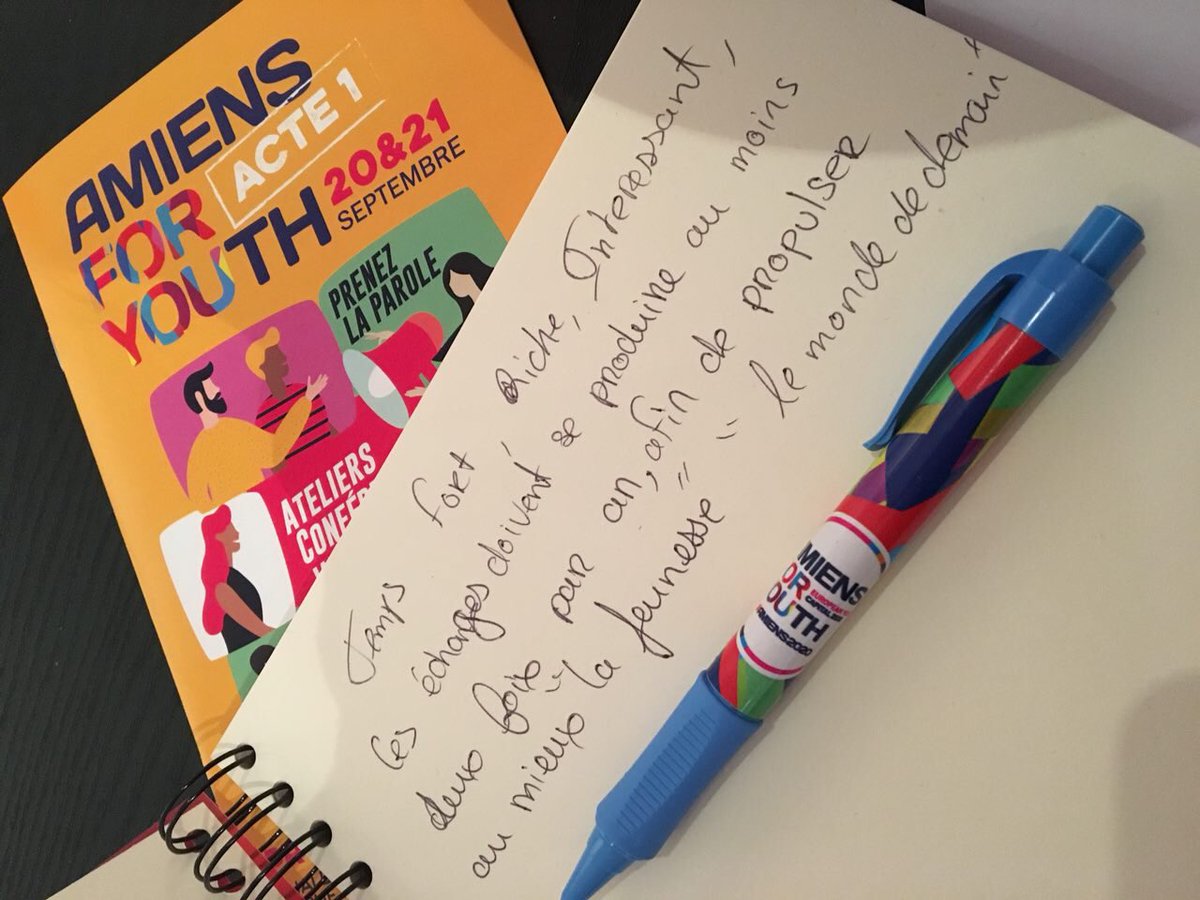 AMIENS
ACTE 1
FOR
YOUTH
20&21
SEPTEMBRE
PRENEZ
LA PAROLE
ATELIERS
Temps fort, Riche, Interessant,
Ces échanges doivent se produire au moins
deux fois par an, afin de propulser
au mieux "la jeunesse" = le monde de demain"
AMIENS
FOR
YOUTH
EUROPEAN
#AMIENS2020